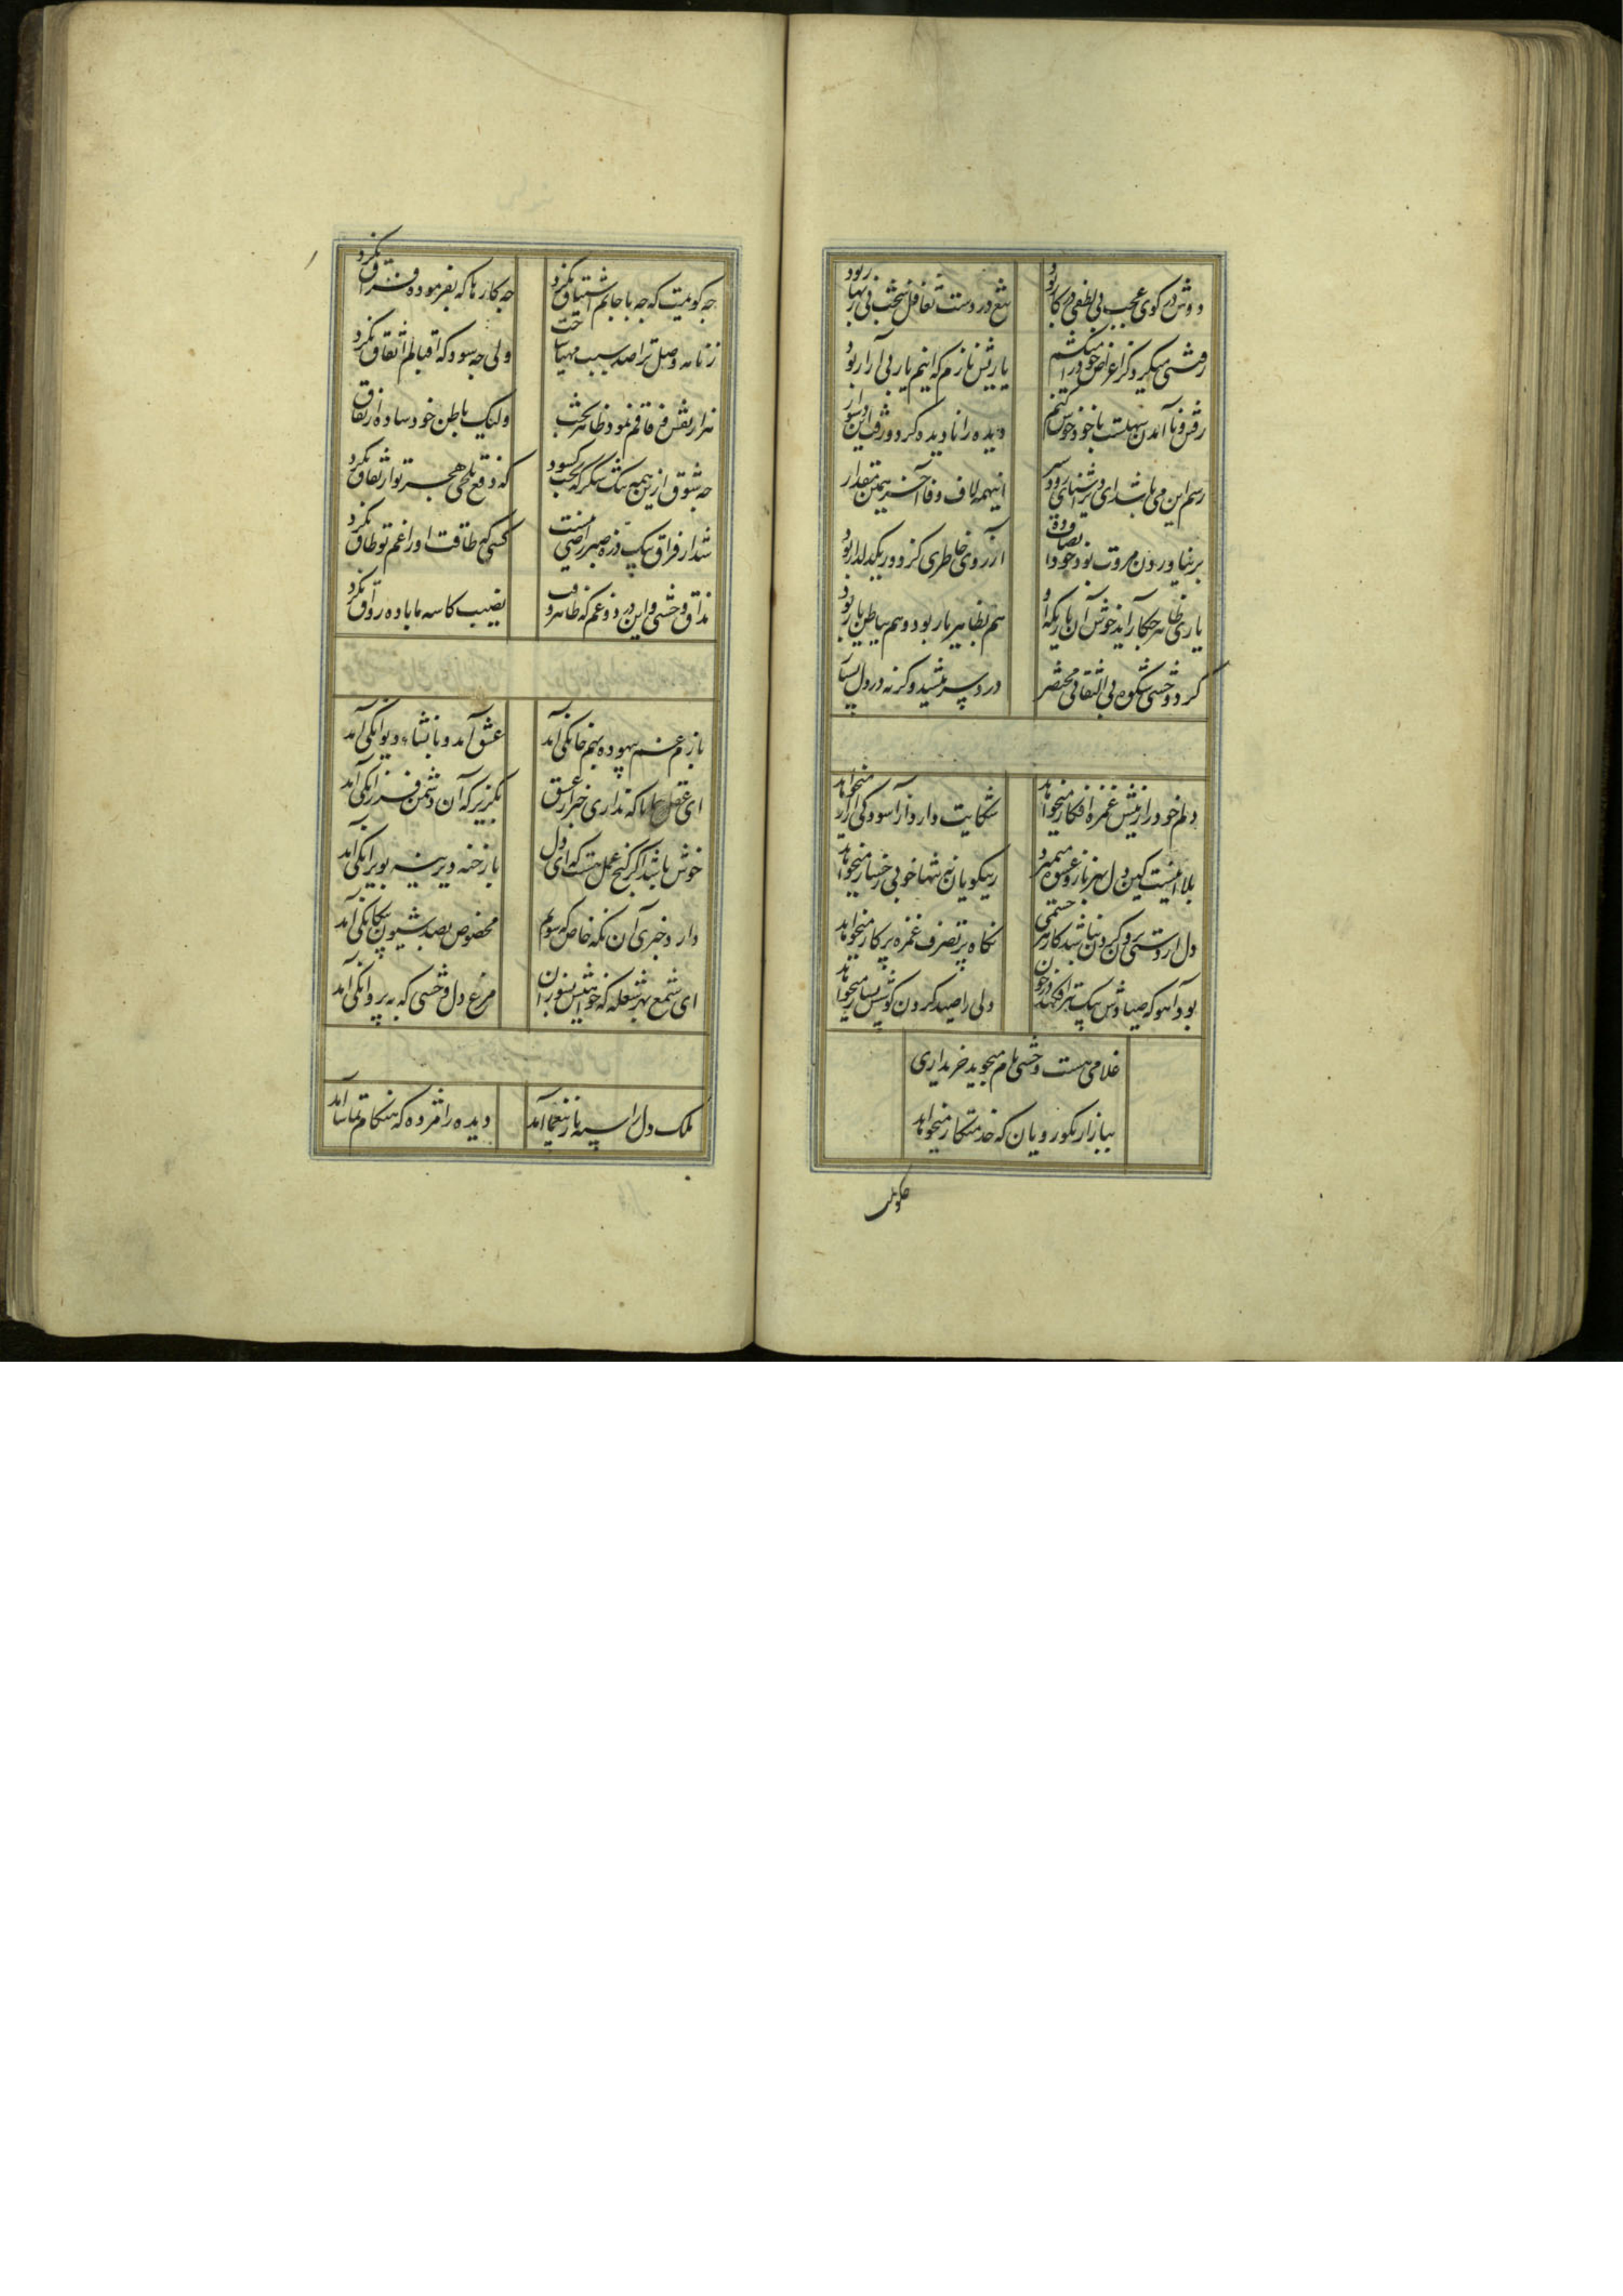 دوش در کوی عجب بی لطفی در کار بود
تیغ در دست تغافل سخت بی زنهار بود
رفتنی میکرد کز اغراض خود را میکشم
یارتش نازم که اینم یار بی آزار بود
رفتن و ناآمدن سهلست با خود خوش کنم
دیده را نادیده کرد و رفت این دشوار بود
رسم این می باشد ای دیر آشنای زود سیر
اینهمه لاف وفا آخر همین مقدار بود
بر نیاوردن مروت بود خود انصاف ده
آرزوی خاطری کز دور یکدیدار بود
یاری ظاهر چکار آید خوش آن یاریکه او
هم بظاهر یار بود و هم بباطن یار بود
کرد وحشی شکوه بی التفاتی مختصر
درد سر میشد وگرنه درد دل بسیار بود
دلم خود را ز نیش غمزه افکار میخواهد
شکایت دارد از آسودگی آزار میخواهد
بلا اینست کین دل بهر ناز و عشوه میمیرد
ز نیکویان نه تنها خوبی رخسار میخواهد
دل از دستی برون کردن نباشد کار هر چشمی
نگاه پر تصرف غمزه پر کار میخواهد
بود آهو که صیادش بیک تیر افکند در خون
دلی را صید کردن کوشش بسیار میخواهد
غلامی هست وحشی نام میجوید خریداری
ببازار نکورویان که خدمتکار میخواهد
چه گویمت
چه گویمت که چه با جانم اشتیاق نکرد
چه کارها که بفرموده فراق نکرد
زمانه وصل ترا صد سبب مهیا ساخت
ولی چه سود که اقبالم اتفاق نکرد
هزار نقش وفاقم نمود ظاهر بخت
ولیک باطن خود ساده از نفاق نکرد
چه شوق از ین همه تنگ شکر که بخت گشود
که دفع تلخی هجر تو از مذاق نکرد
شد از فراق بیک ذره صبر راضی نیست
کسی که طاقت او را غم تو طاق نکرد
مذاق وحشی و این درد و غم که ظاهر و
نصیب کاسه ما باده رواق نکرد
بازم غم بیهوده بهم خانگی آمد
عشق آمد و با نشاء دیوانگی آمد
ای عقل همانا که نداری خبر از عشق
بگریز که آن دشمن فرزانگی آمد
خوش باشد اگر کنج غمی هست که ای دل
باز خنه دیرینه بویرانگی آمد
دارد خبری آن نگه خاص که سویم
مخصوص بصد شیون بیگانگی آمد
ای شمع بهر شعله که خواهیش بسوزان
مرغ دل وحشی که به پروانگی آمد
ملک دل را سپه ناز بیغما آمد
دیده را مژده که هنگام تماشا آمد